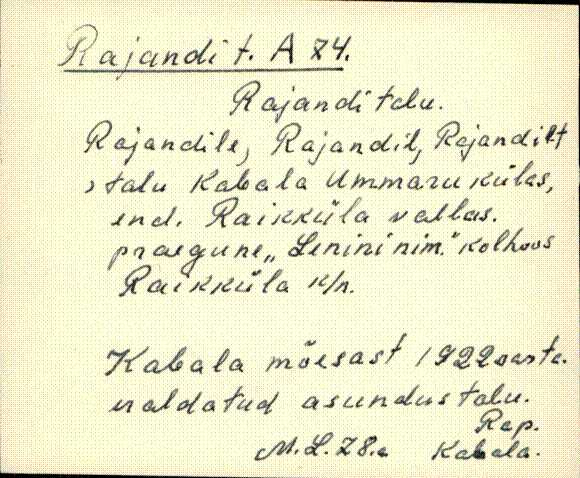 Rajandi t. A 74.
Rajandi talu.
Rajandile, Rajandil, Rajandilt
, talu Kabala Ummaru külas,
end. Raikküla vallas.
praegune „Lenini nim." kolhoos
Raikküla k/n.
Kabala mõesast 1922 aasta.
eraldatud asundustalu.
Rap.
M. L. 78.a Kabala.